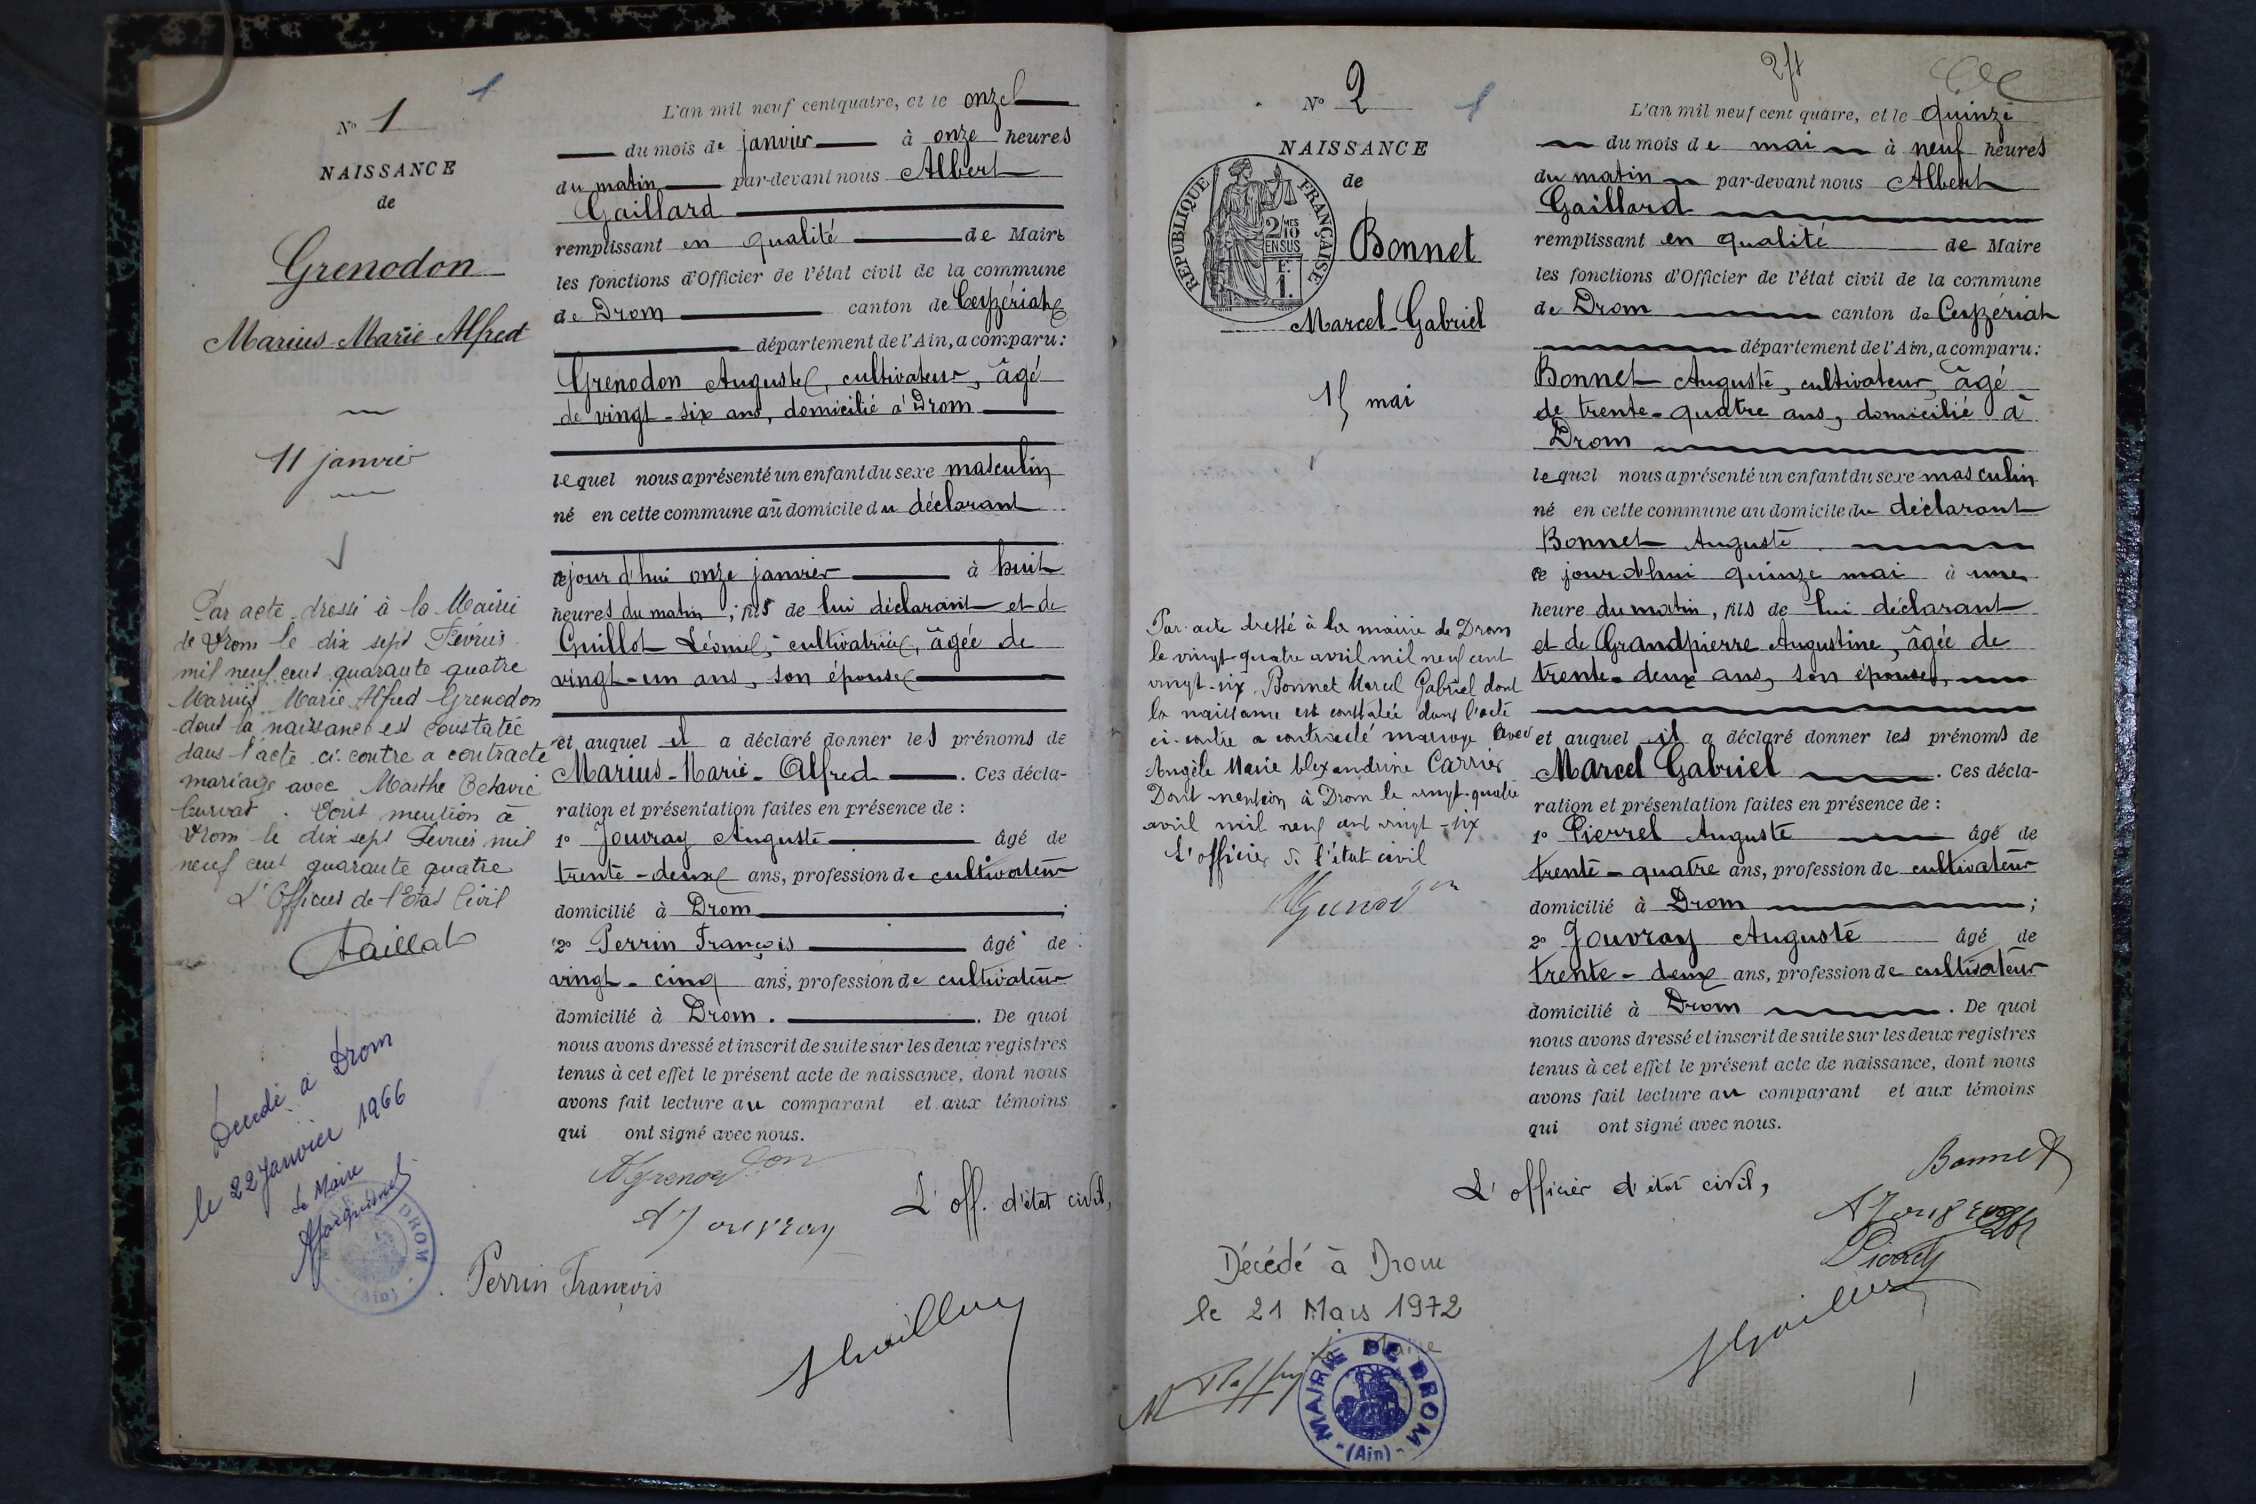 1
N° 1
NAISSANCE
de
Grenodon
Marius-Marie-Alfred
11 janvier
Par acte dressé à la Mairie
de Drom le dix sept Février
mil neuf cent quarante quatre
Marius Marie Alfred Grenodon
dont la naissance est constatée
dans l'acte ci-contre a contracté
mariage avec Marthe Octavie
Curvat. Dont mention à
Drom le dix sept Février mil
neuf cent quarante quatre
L'Officier de l'Etat Civil
Décédé à Drom
le 22 Janvier 1966
Le Maire
DROM
(Ain)
L'an mil neuf cent quatre, et le onze
du mois de janvier à onze heures
du matin par-devant nous Albert
Gaillard
remplissant en qualité de Maire
les fonctions d'Officier de l'état civil de la commune
de Drom canton de Ceyzériat
département de l'Ain, a comparu:
Grenodon Auguste, cultivateur, âgé
de vingt-six ans, domicilié à Drom
lequel nous a présenté un enfant du sexe masculin
né en cette commune au domicile du déclarant
cejourd'hui onze janvier à huit
heures du matin; fils de lui déclarant et de
Guillot Léonie, cultivatrice, âgée de
vingt-un ans, son épouse
et auquel il a déclaré donner les prénoms de
Marius-Marie-Alfred. Ces décla-
ration et présentation faites en présence de:
1° Jouvray Auguste âgé de
trente-deux ans, profession de cultivateur
domicilié à Drom;
2° Perrin François âgé de
vingt-cinq ans, profession de cultivateur
domicilié à Drom. De quoi
nous avons dressé et inscrit de suite sur les deux registres
tenus à cet effet le présent acte de naissance, dont nous
avons fait lecture au comparant et aux témoins
qui ont signé avec nous.
A Grenodon
A Jouvray
L'off. d'état civil,
Perrin François
2ft
N° 2
1
NAISSANCE
de
RÉPUBLIQUE FRANÇAISE
2/10 MES
EN SUS
F.
1.
Bonnet
Marcel Gabriel
15 mai
Par acte dressé à la mairie de Drom
le vingt-quatre avril mil neuf cent
vingt-six, Bonnet Marcel Gabriel dont
la naissance est constatée dans l'acte
ci-contre a contracté mariage avec
Angèle Marie Alexandrine Carrier
Dont mention à Drom le vingt-quatre
avril mil neuf cent vingt-six
L'officier de l'état civil
Décédé à Drom
le 21 Mars 1972
le Maire
MAIRIE DE DROM
(Ain)
L'an mil neuf cent quatre, et le quinze
du mois de mai à neuf heures
du matin par-devant nous Albert
Gaillard
remplissant en qualité de Maire
les fonctions d'Officier de l'état civil de la commune
de Drom canton de Ceyzériat
département de l'Ain, a comparu:
Bonnet Auguste, cultivateur, âgé
de trente-quatre ans, domicilié à
Drom
lequel nous a présenté un enfant du sexe masculin
né en cette commune au domicile du déclarant
Bonnet Auguste
ce jourd'hui quinze mai à une
heure du matin, fils de lui déclarant
et de Grandpierre Augustine, âgée de
trente-deux ans, son épouse,
et auquel il a déclaré donner les prénoms de
Marcel Gabriel. Ces décla-
ration et présentation faites en présence de:
1° Pierrel Auguste âgé de
trente-quatre ans, profession de cultivateur
domicilié à Drom;
2° Jouvray Auguste âgé de
trente-deux ans, profession de cultivateur
domicilié à Drom. De quoi
nous avons dressé et inscrit de suite sur les deux registres
tenus à cet effet le présent acte de naissance, dont nous
avons fait lecture au comparant et aux témoins
qui ont signé avec nous.
Bonnet
L'officier d'état civil,